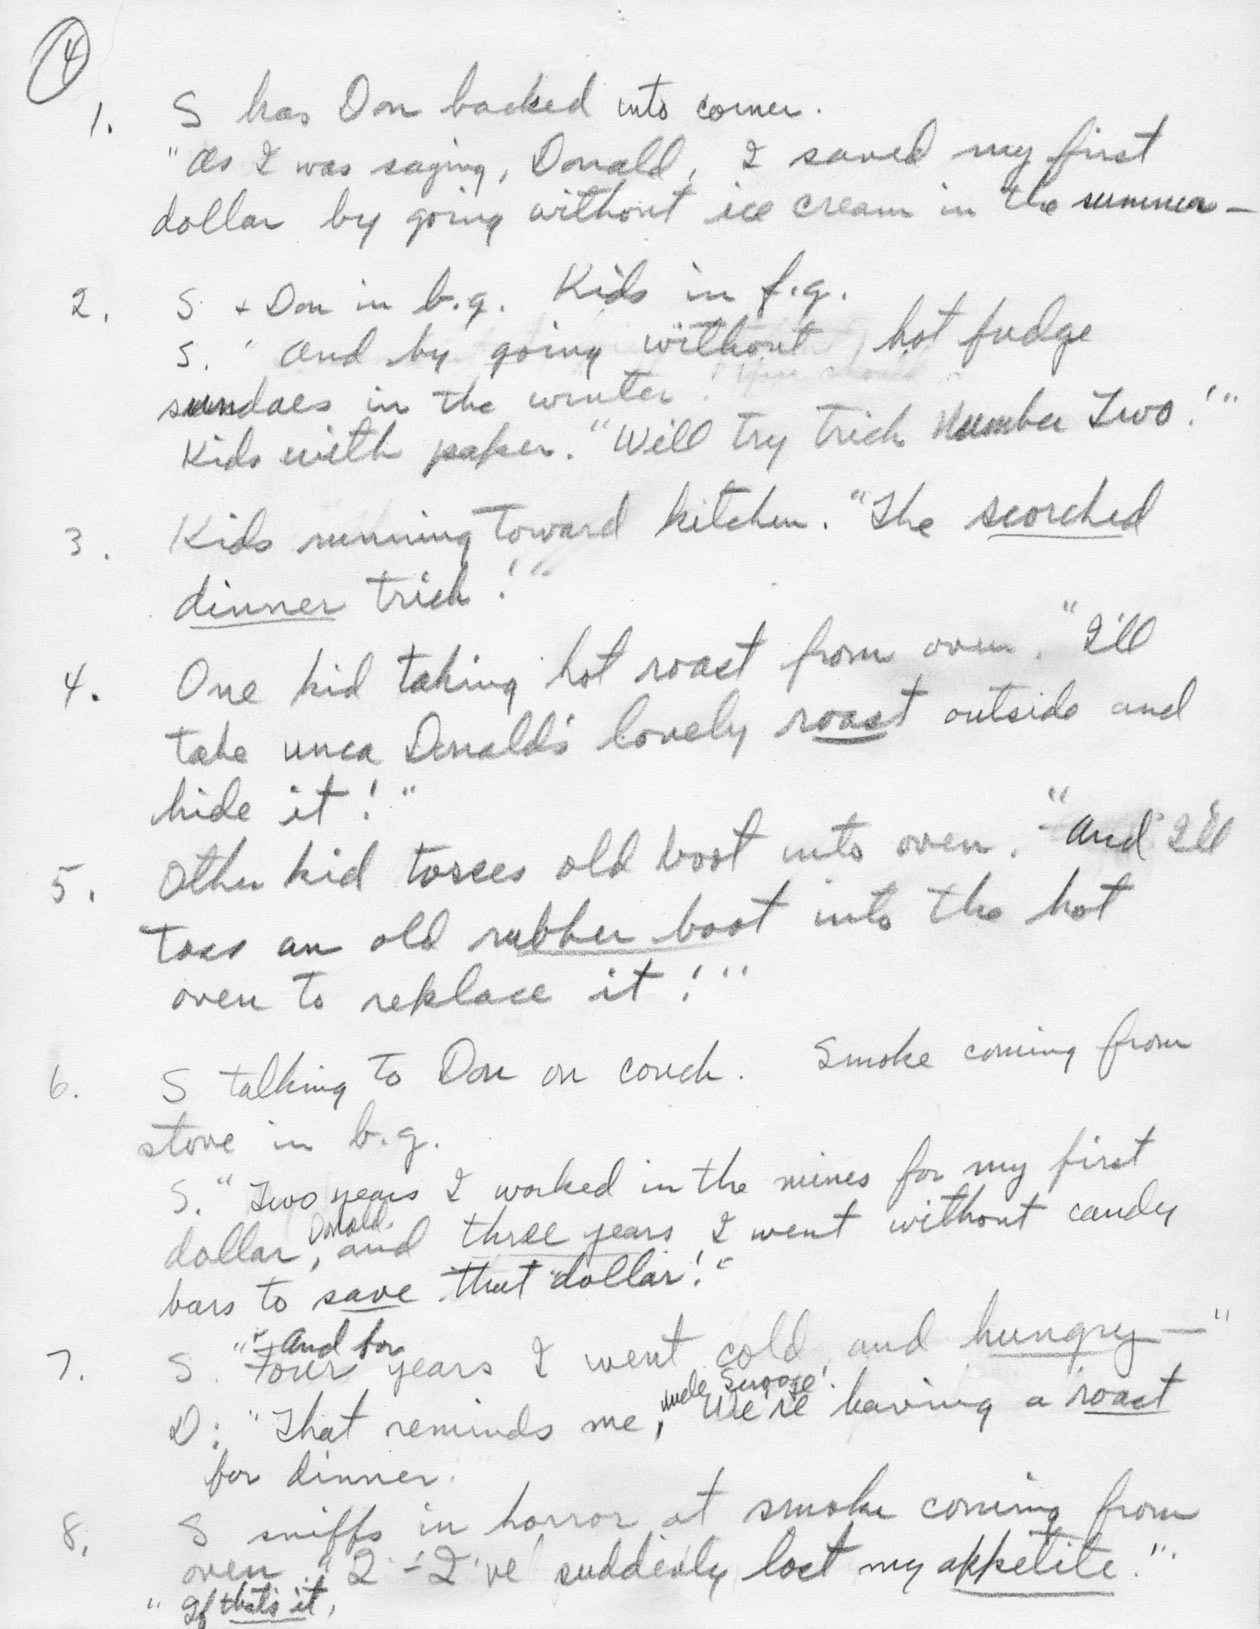 4
1. S has Don backed into corner.
"As I was saying, Donald, I saved my first
dollar by going without ice cream in the summer —
2. S + Don in b.g. Kids in f.g.
S. "And by going without hot fudge
sundaes in the winter!
Kids with paper. "Will try trick Number Two!"
3. Kids running toward kitchen. "The scorched
dinner trick!"
4. One kid taking hot roast from oven. "I'll
take unca Donald's lovely roast outside and
hide it!"
5. Other kid tosses old boot into oven. "And I'll
toss an old rubber boot into the hot
oven to replace it!"
6. S talking to Don on couch. Smoke coming from
stove in b.g.
S. "Two years I worked in the mines for my first
Donald,
dollar, and three years I went without candy
bars to save that dollar!"
And for
7. S. "Four years I went cold and hungry —"
Uncle Scrooge!
D: "That reminds me, We're having a roast
for dinner.
8. S sniffs in horror at smoke coming from
oven "I - I've suddenly lost my appetite."
"If that's it,